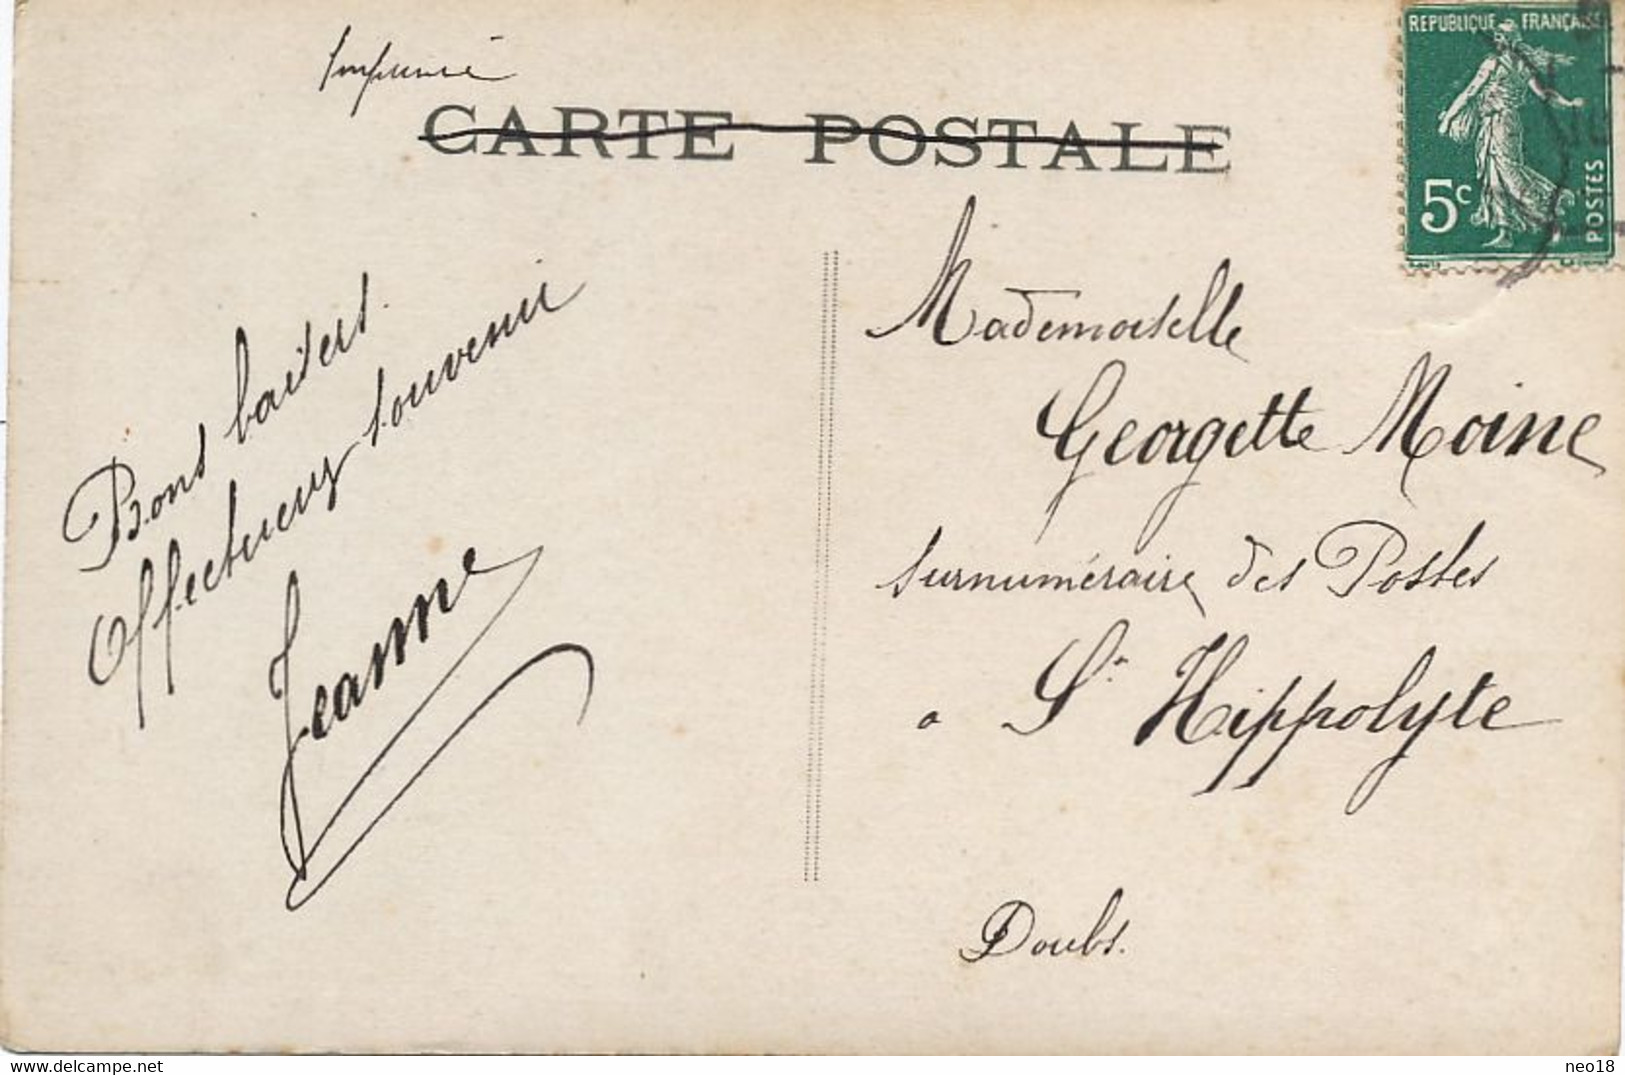 Imprimé
CARTE POSTALE
REPUBLIQUE FRANÇAISE
5c
POSTES
Bons baisers.
Affectueux souvenir
Jeanne
Mademoiselle
Georgette Moine
surnuméraire des Postes
à St Hippolyte
Doubs.
neo18